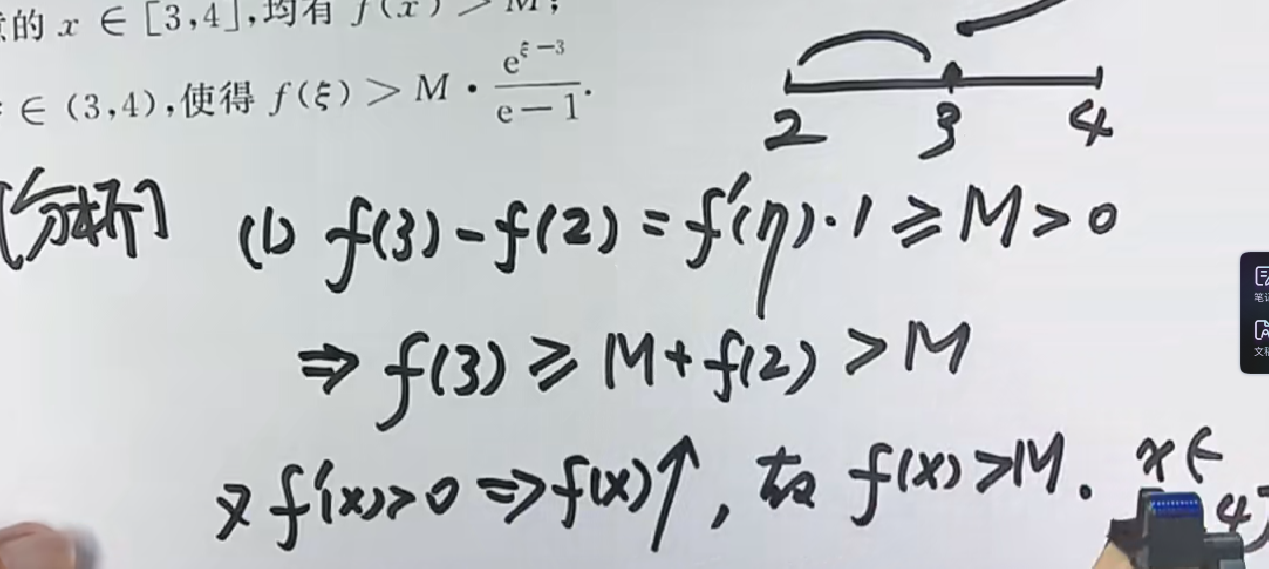 的 x ∈ [3,4],均有 f(x) > M;
∈ (3,4),使得 f(ξ) > M · e^{ξ-3}/(e-1).
2 3 4
[分析] (1) f(3)-f(2) = f'(η)·1 ≥ M > 0
⇒ f(3) ≥ M + f(2) > M
又 f'(x)>0 ⇒ f(x)↑, 故 f(x) > M. x∈
4]
笔记
文稿